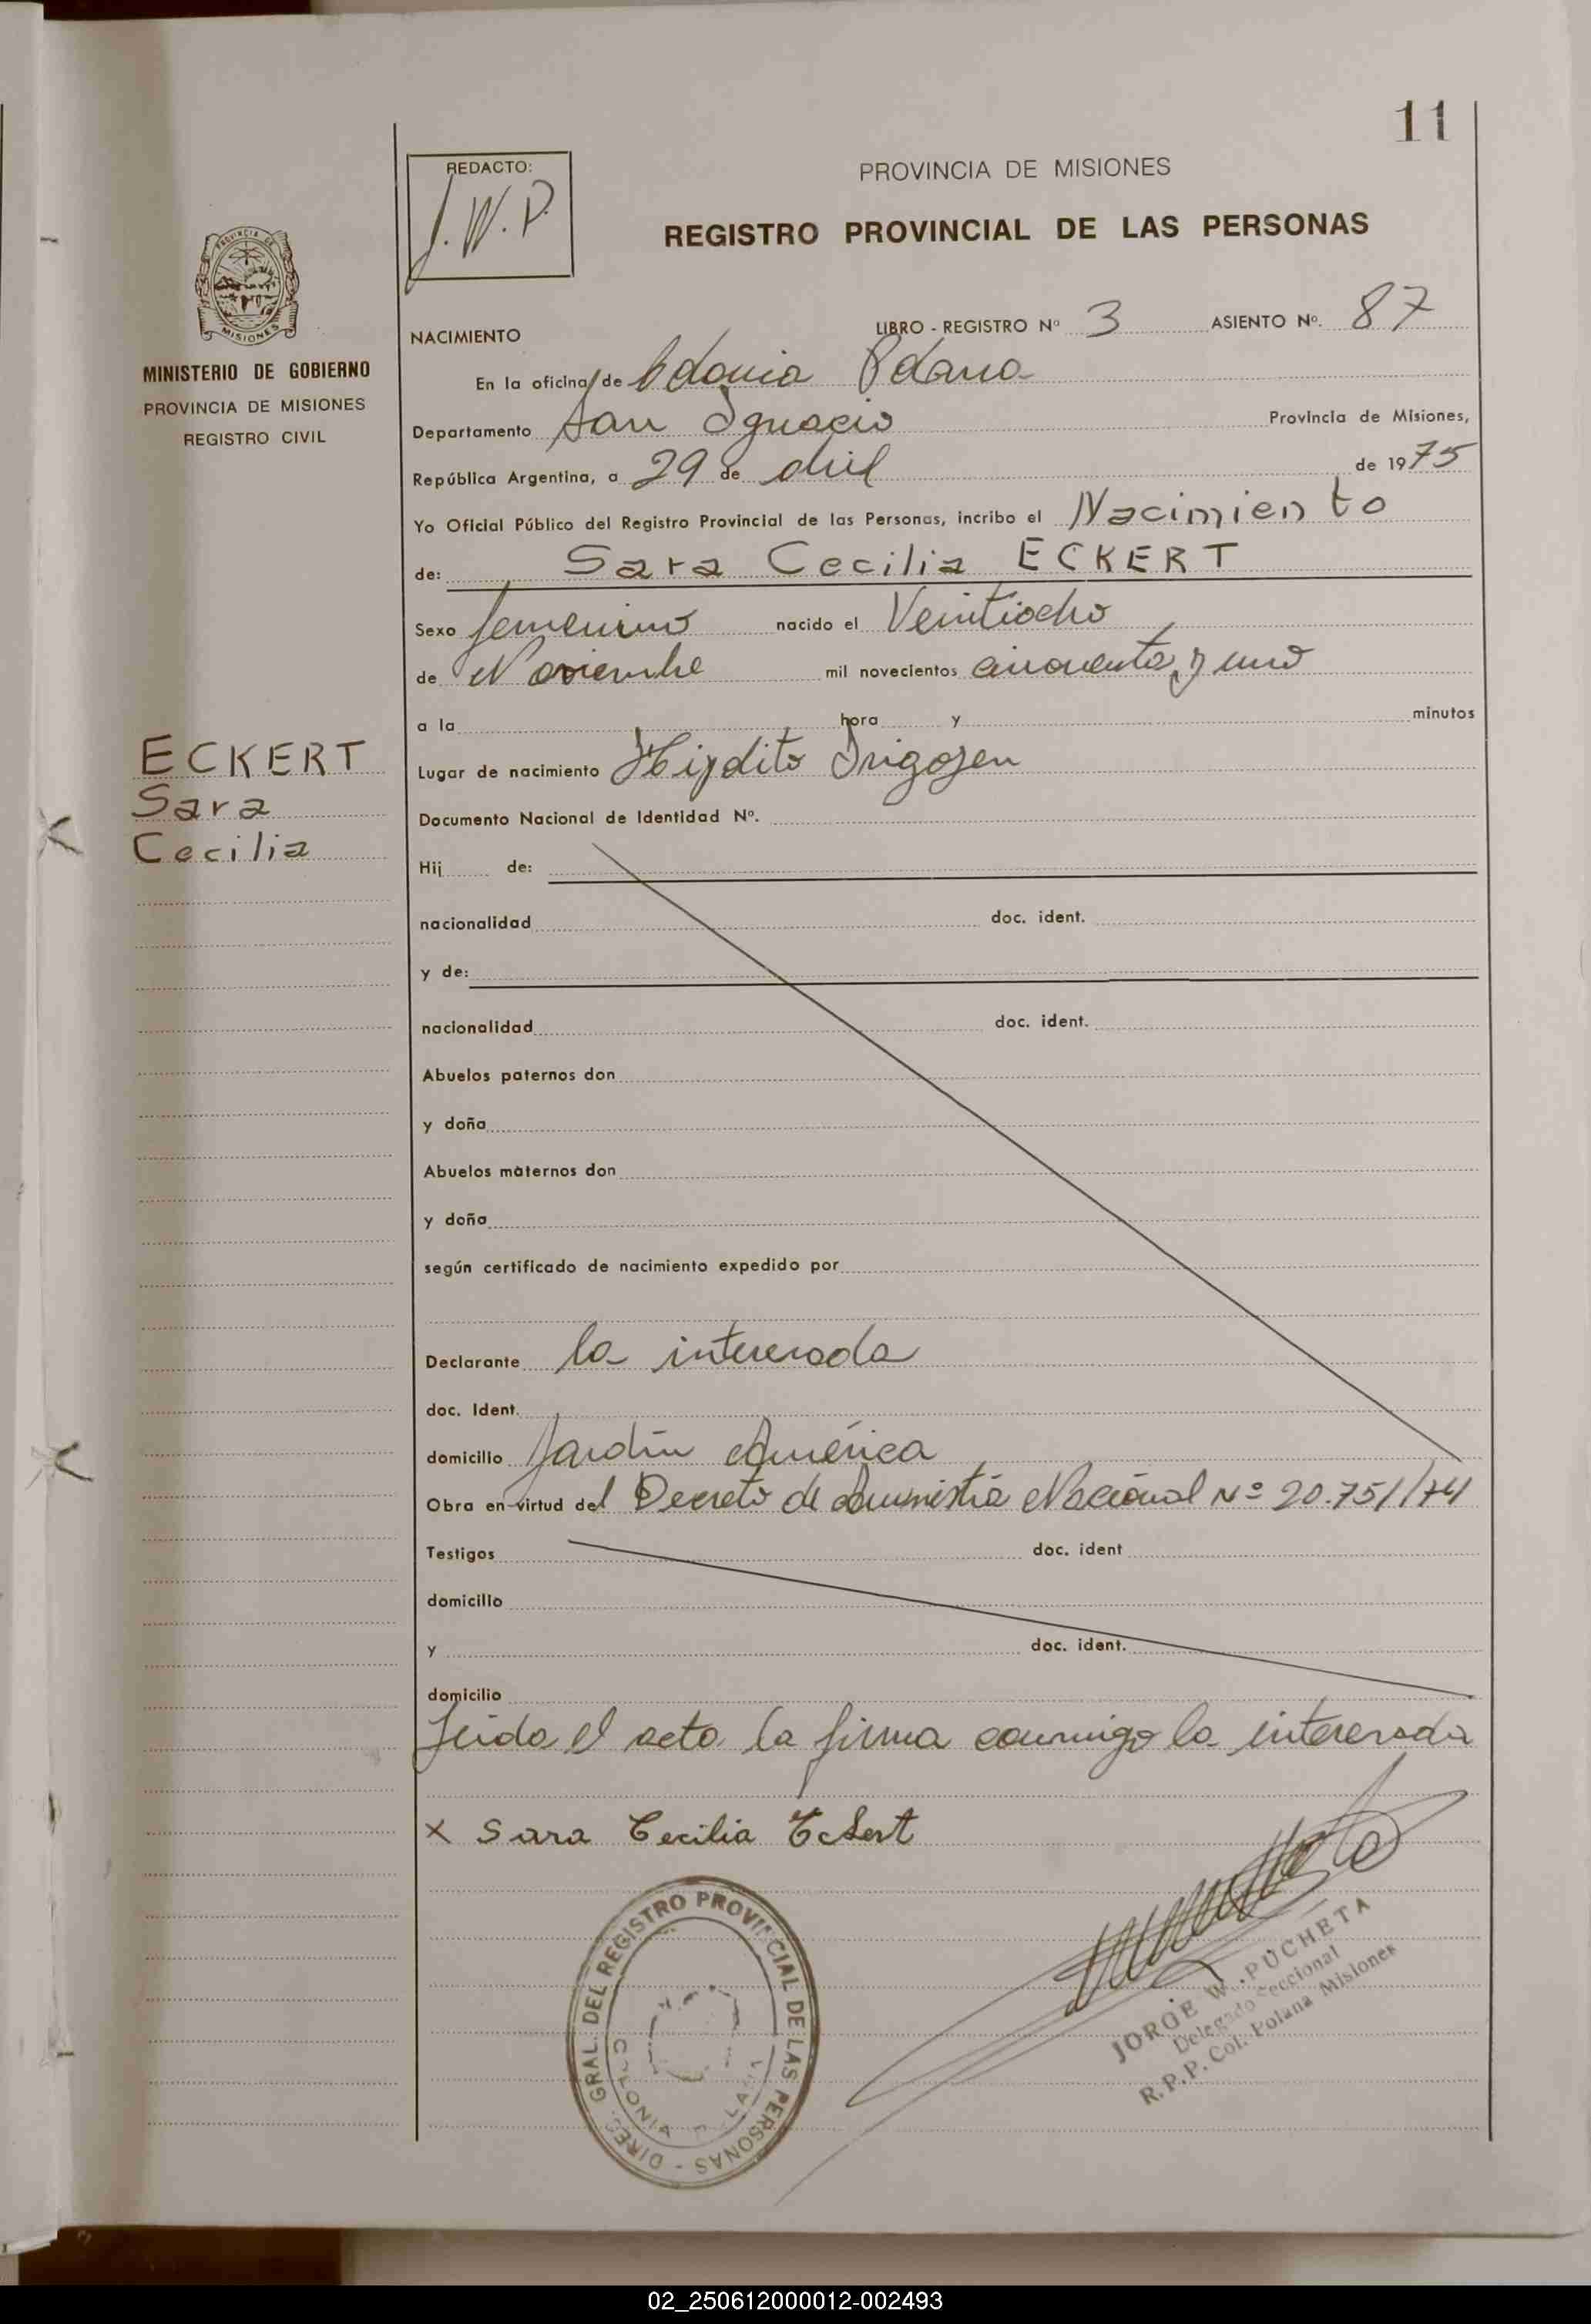 11
REDACTO:
J.W.P.
PROVINCIA DE MISIONES
REGISTRO PROVINCIAL DE LAS PERSONAS
PROVINCIA DE
MISIONES
MINISTERIO DE GOBIERNO
PROVINCIA DE MISIONES
REGISTRO CIVIL
NACIMIENTO LIBRO - REGISTRO Nº 3 ASIENTO Nº. 87
En la oficina de Colonia Polana
Departamento San Ignacio Provincia de Misiones,
República Argentina, a 29 de abril de 1975
Yo Oficial Público del Registro Provincial de las Personas, incribo el Nacimiento
de: Sara Cecilia ECKERT
Sexo femenino nacido el Veintiocho
de Noviembre mil novecientos cincuenta y uno
a la hora y minutos
ECKERT
Sara
Cecilia
Lugar de nacimiento Hipólito Irigoyen
Documento Nacional de Identidad Nº.
Hij de:
nacionalidad doc. ident.
y de:
nacionalidad doc. ident.
Abuelos paternos don
y doña
Abuelos maternos don
y doña
según certificado de nacimiento expedido por
Declarante la interesada
doc. Ident.
domicilio Jardín América
Obra en virtud del Decreto de Amnistía Nacional Nº 20.751/74
Testigos doc. ident
domicilio
y doc. ident.
domicilio
Leida el acta la firma conmigo la interesada
x Sara Cecilia Eckert
DIREC. GRAL. DEL REGISTRO PROVINCIAL DE LAS PERSONAS -
COLONIA P LANA
JORGE W. PUCHETA
Delegado Seccional
R.P.P. Col. Polana Misiones
02_250612000012-002493